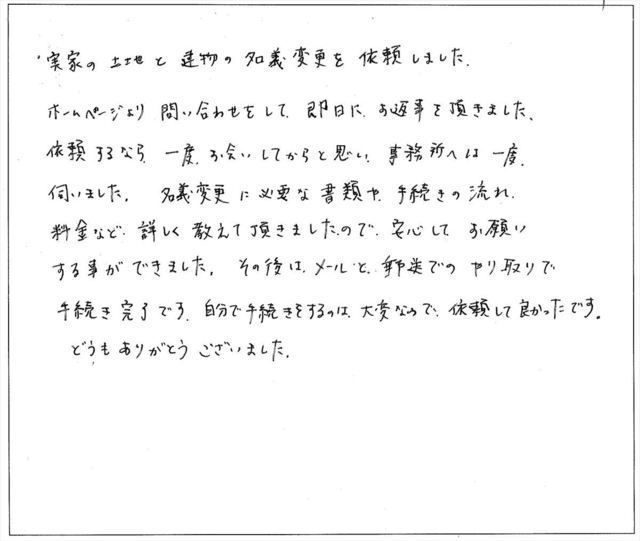 実家の土地と建物の名義変更を依頼しました.
ホームページより問い合わせをして、即日に、お返事を頂きました、
依頼するなら、一度、お会いしてからと思い、事務所へは一度、
伺いました。名義変更に必要な書類や、手続きの流れ、
料金など、詳しく教えて頂きましたので、安心してお願い
する事ができました。その後は、メールと、郵送でのやり取りで
手続き完了です、自分で手続きをするのは、大変なので、依頼して良かったです。
どうもありがとうございました.